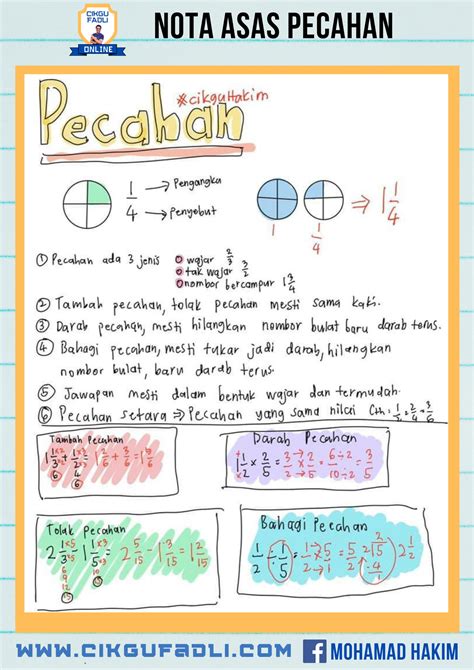 CIKGU
FADLI
ONLINE
NOTA ASAS PECAHAN
Pecahan
#cikguHakim
1/4 → Pengangka
→ Penyebut
1 1/4 ⇒ 1 1/4
① Pecahan ada 3 jenis wajar 2/3
tak wajar 3/2
nombor bercampur 1 3/4
② Tambah pecahan, tolak pecahan mesti sama kaki.
③ Darab pecahan, mesti hilangkan nombor bulat baru darab terus.
④ Bahagi pecahan, mesti tukar jadi darab, hilangkan
nombor bulat, baru darab terus.
⑤ Jawapan mesti dalam bentuk wajar dan termudah.
⑥ Pecahan setara ⇒ Pecahan yang sama nilai Cth: 1/2 = 2/4 = 3/6
Tambah Pecahan
Darab Pecahan
1 1/2 × 2/5 = 3/2 → × 2/5 = 6÷2/10÷2 = 3/5
Tolak Pecahan
2 1/3 ×5/×5 - 1 1/5 ×3/×3 = 2 5/15 - 1 3/15 = 1 2/15
6
9
12
15
10
15
Bahagi Pecahan
1/2 ÷ 1/5 = 1/2 → × 5/1 = 5/2 2 1/2
WWW.CIKGUFADLI.COM
f MOHAMAD HAKIM